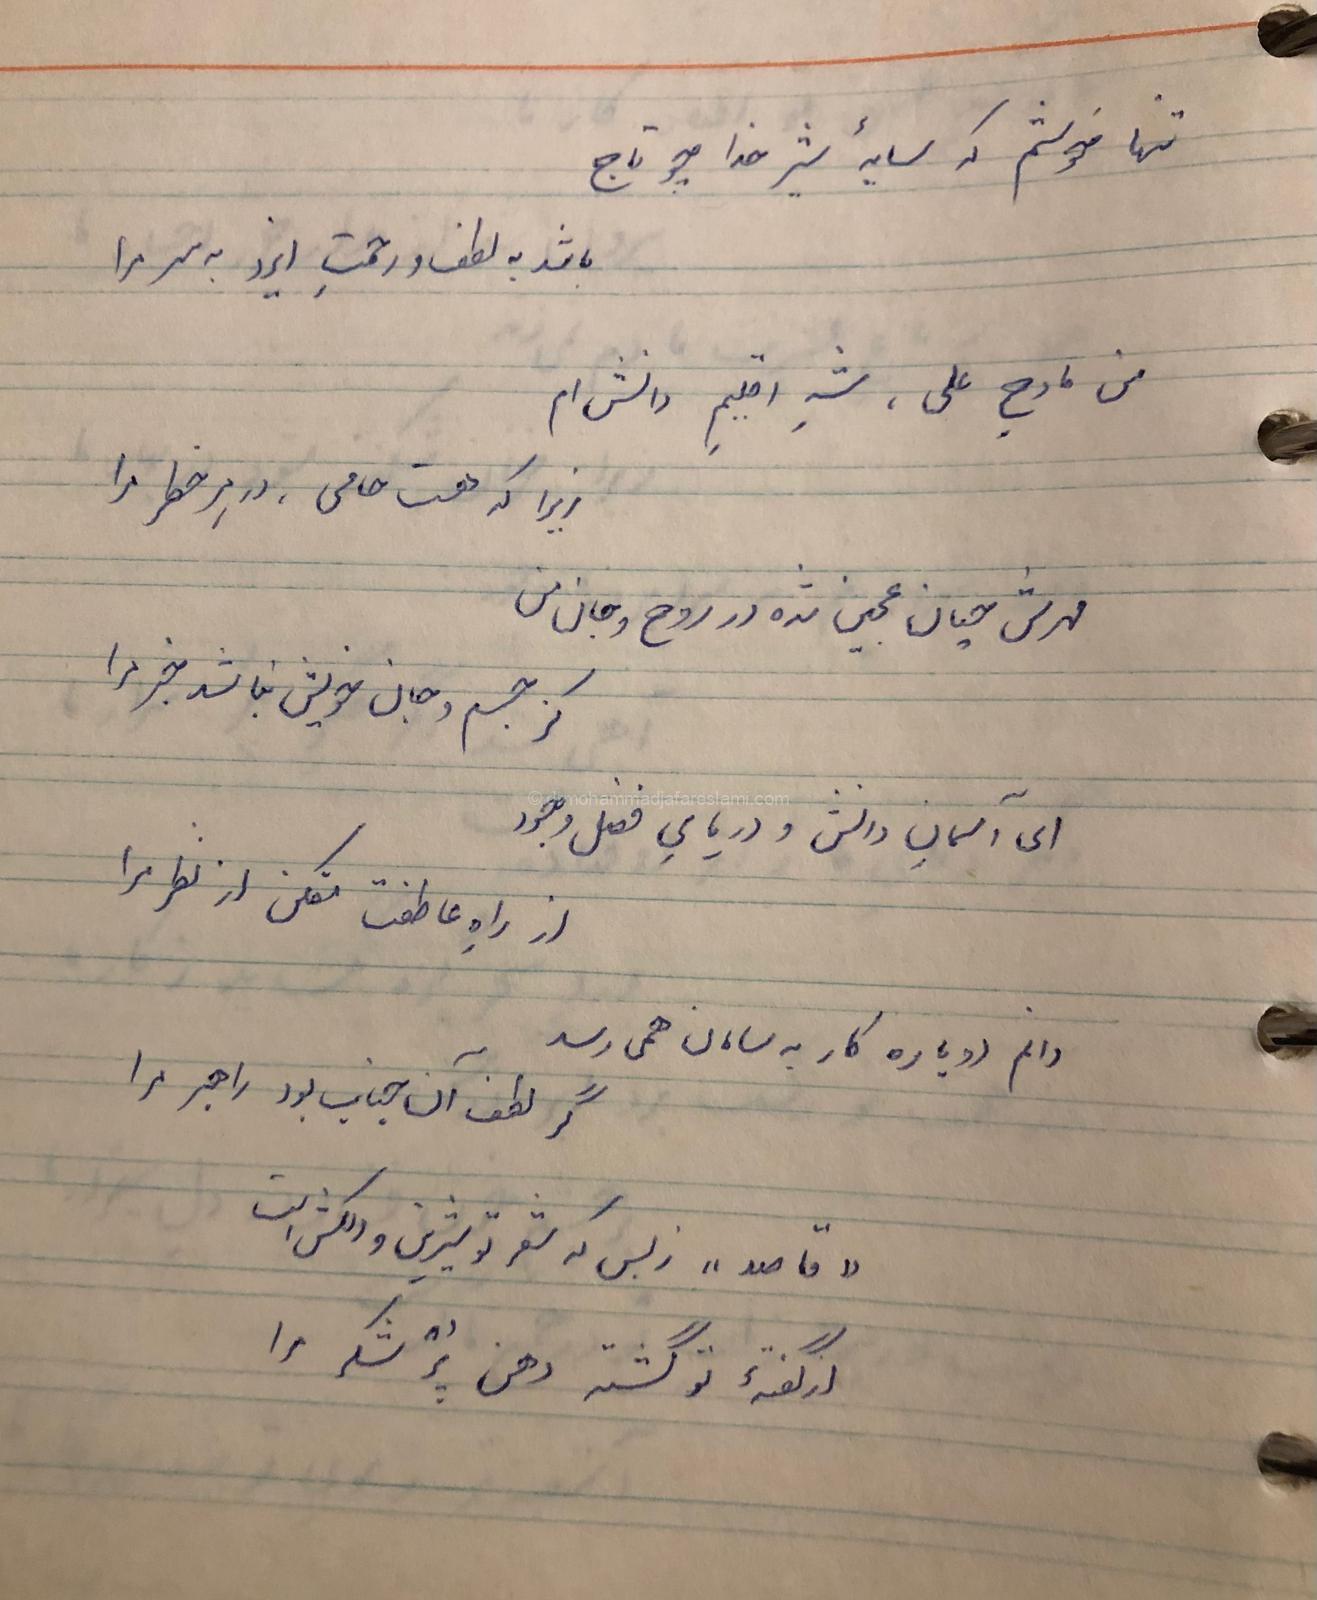 تنها خوشم که سایهٔ شیر خدا چو تاج
باشد به لطف و رحمتِ ایزد به سر مرا
من مادحِ علی ، شهِ اقلیمِ دانش ام
زیرا که هست حامی ، در هر خطر مرا
مهرش چنان عجین شده در روح و جان من
کز جسم و جان خویش نباشد خبر مرا
© drmohammadjafareslami.com
ای آسمانِ دانش و دریایِ فضل وجود
از راهِ عاطفت مفکن از نظر مرا
دانم دوباره کار به سامان همی رسد
گر لطف آن جناب بود راهبر مرا
« قاصد » زبس که شعر تو شیرین و دلکش است
از گفتهٔ تو گشته دهن پُر شکر مرا